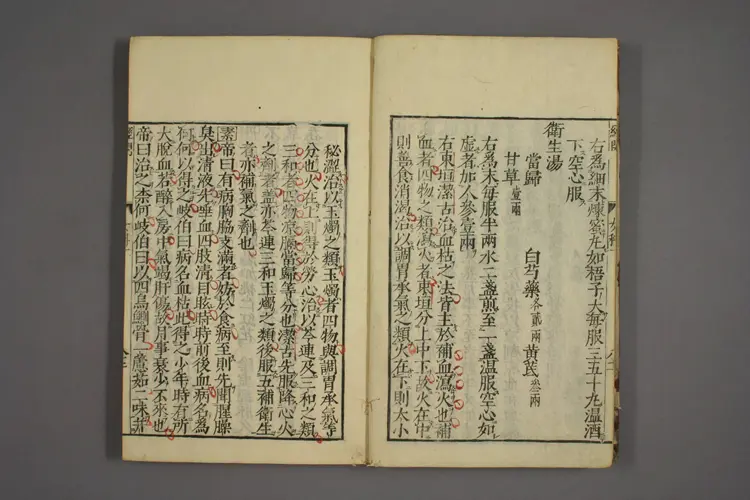 右爲細末煉蜜丸如梧子大每服三五十丸温酒
下空心服
衛生湯
當歸 白芍藥各貳兩 黄芪叁兩
甘草壹兩
右爲末每服半兩水二盞煎至一盞温服空心如
虚者加人參壹兩
右東垣潔古治血枯之法皆主於補血瀉火也補
血者四物之類瀉火者東垣分上中下故火在中
則善食消渴治以調胃承氣之類火在下則大小
秘澀治以玉燭之類玉燭者四物與調胃承氣等
分也火在上則得於勞心治以芩連及三和之類
三和者四物凉膈當歸等分也潔古先服降心火
之劑者盖亦芩連三和玉燭之類後服五補衛生
者亦補氣之劑也
素帝曰有病胸脇支滿者妨於食病至則先聞腥臊
臭出清液先唾血四肢清目眩時時前後血病名爲
何何以得之岐伯曰病名血枯此得之少年時有所
大脫血若醉入房中氣竭肝傷故月事衰少不來也
帝曰治之柰何岐伯曰以四烏鰂骨一藘茹二味并